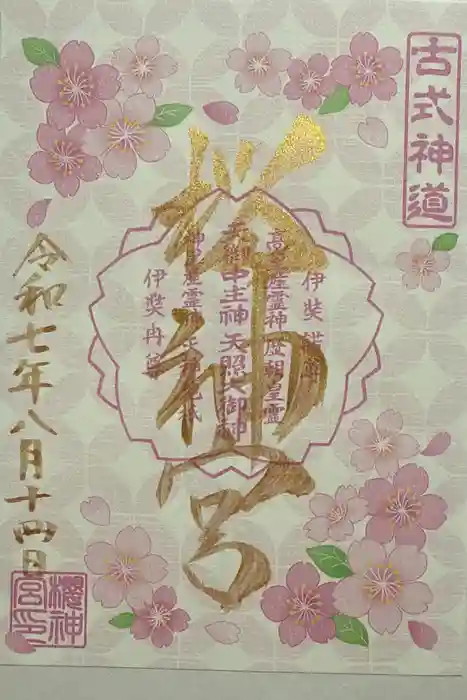 古式神道
桜神宮
伊弉諾尊
高皇産霊神 歴朝皇霊
天御中主神 天照大御神
神皇産霊神 天神地祇
伊弉冉尊
令和七年八月十四日
櫻神宮印